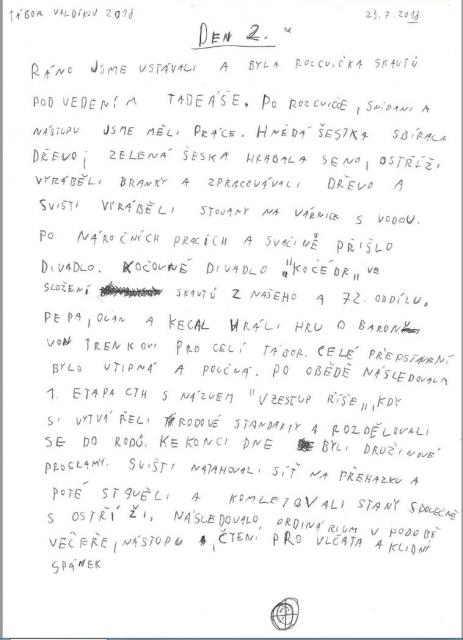 TÁBOR VALDÍKOV 2018
23.7.2018
DEN 2.
RÁNO JSME VSTÁVALI A BYLA ROZCVIČKA SKAUTŮ
POD VEDENÍM TADEÁŠE. PO ROZCVIČCE, SNÍDANI A
NÁSTUPU JSME MĚLI PRÁCE. HNĚDÁ ŠESTKA SBÍRALA
DŘEVO, ZELENÁ ŠESKA HRABALA SENO, OSTŘÍŽI
VYRÁBĚLI BRANKY A ZPRACOVÁVALI DŘEVO A
SVIŠTI VYRÁBĚLI STOJANY NA VÁRNICE S VODOU.
PO NÁROČNÝCH PRACÍCH A SVAČINĚ PŘIŠLO
DIVADLO. KOČOVNÉ DIVADLO "KOČÉDR" VE
SLOŽENÍ SKAUTŮ Z NAŠEHO A 72. ODDÍLU.
PEPA, OLAN A KECAL HRÁLI HRU O BARON
VON TRENKOVI PRO CELÍ TÁBOR. CELÉ PŘEDSTAVENÍ
BYLO VTIPNÁ A POUČNÁ. PO OBĚDĚ NÁSLEDOVALA
1. ETAPA CTH S NÁZVEM "VZESTUP ŘÍŠE", KDY
SI VYTVÁŘELI RODOVÉ STANDARTY A ROZDĚLOVALI
SE DO RODŮ. KE KONCI DNE BYLI DRUŽINNÉ
PROGRAMY. SVIŠTI NATAHOVALI SÍŤ NA PŘEHAZKU A
POTÉ STAVĚLI A KOMLETOVALI STANY SPOLEČNĚ
S OSTŘÍŽI. NÁSLEDOVALO ORDINÁRIUM V PODOBĚ
VEČEŘE, NÁSTUPU, ČTENÍ PRO VLČATA A KLIDNÍ
SPÁNEK